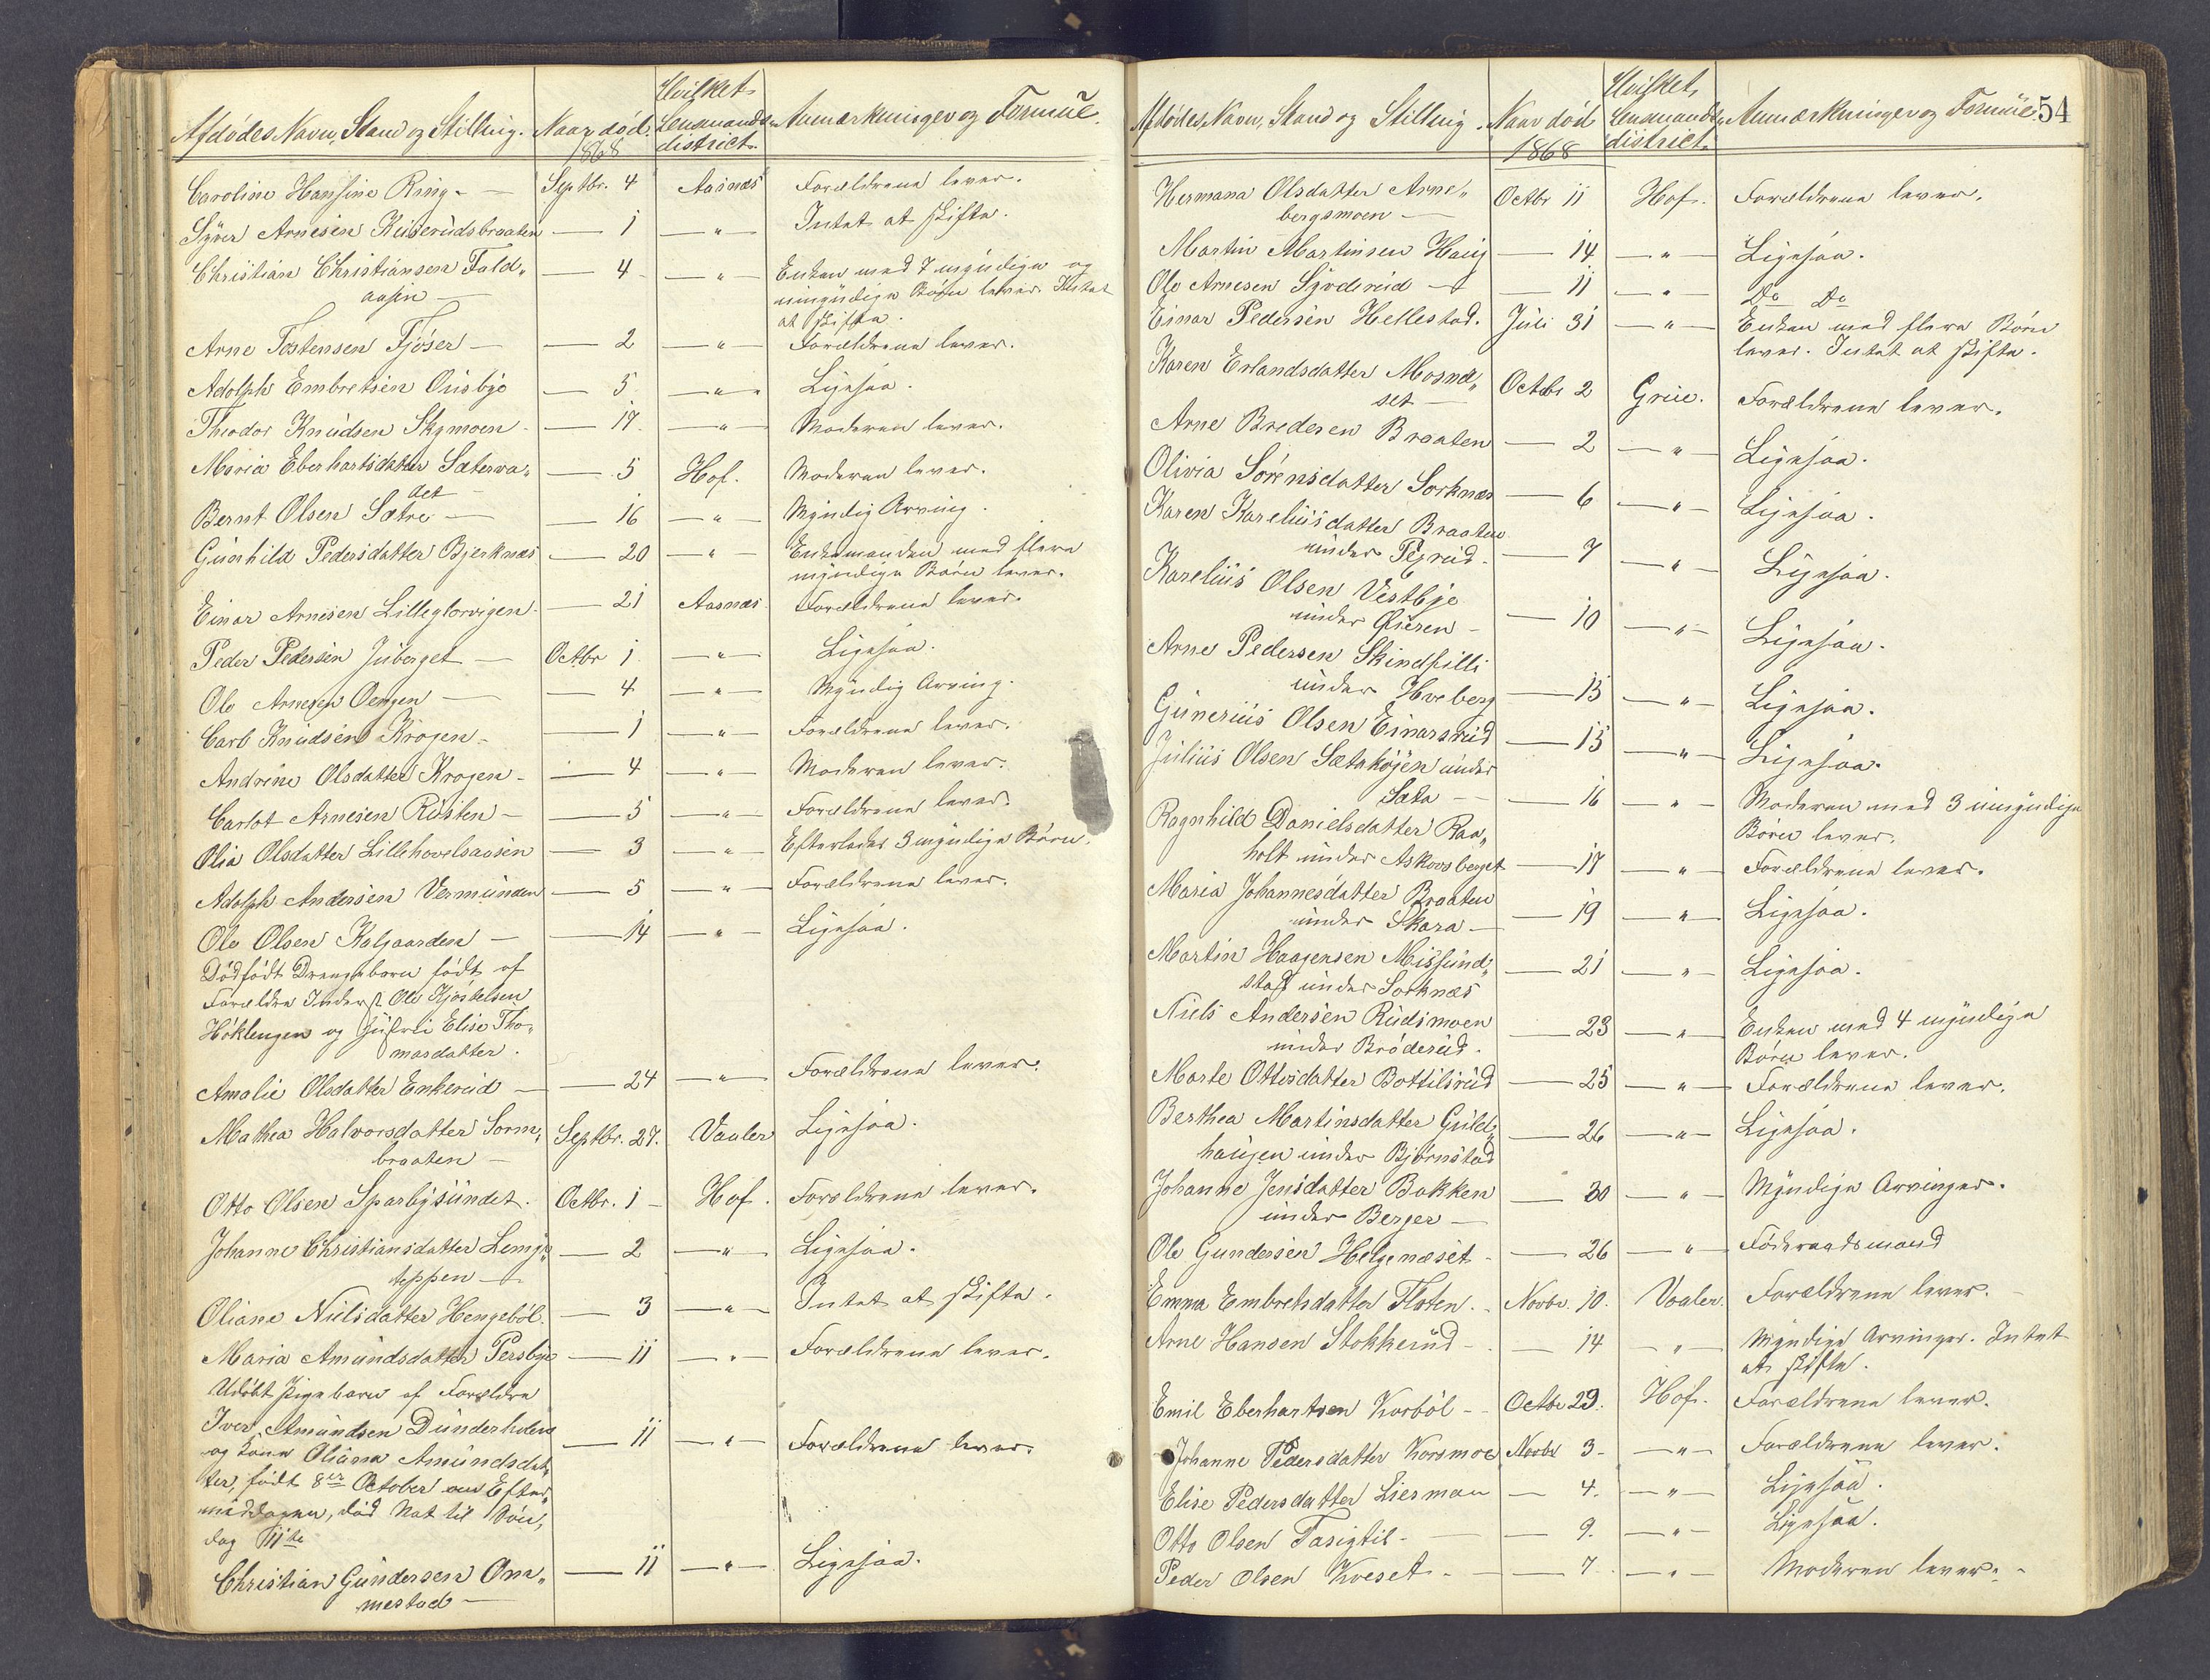 Hvilket
Afdødes Navn, Stand og Stilling. Naar død. Lensmands- Anmærkninger og Formue.
1868 district.
Caroline Hansine Ring. — Septbr. 4 Aasnæs Forældrene lever.
Syver Arnesen Kuserudsbraaten — 1 — " — Intet at skifte.
Christian Christiansen Fald„ — 4 — " — Enken med 7 myndige og
aasen — umyndige Børn lever. Intet
at skifte.
Arne Tostensen Fjøser — — 2 — " — Forældrene lever.
Adolph Embretsen Ousbye — 5 — " — Ligesaa.
Theodor Knudsen Skymoen — 17. — " — Moderen lever.
Maria Eberhartsdatter Sæterva„ — 5 Hof. Moderen lever.
det —
Bernt Olsen Sætre — — 16 — " — Myndig Arving.
Gunhild Pedersdatter Bjerknæs — 20 — " — Enkemanden med flere
myndige Børn lever.
Einar Arnesen Lilleglorvigen. — 21 Aasnæs Forældrene lever.
Peder Pedersen Juberget — Octbr 1 — " — Ligesaa.
Ole Arnesen Oengen — — 4 — " — Myndig Arving.
Carl Knudsen Krogen — — 1 — " — Forældrene lever.
Andrine Olsdatter Krogen — — 4 — " — Moderen lever.
Carlot Arnesen Rosten — — 5 — " — Forældrene lever.
Olia Olsdatter Lillehovelsaasen — 3 — " — Efterlader 3 myndige Børn.
Adolph Andersen Vermunden — 5 — " — Forældrene lever.
Ole Olsen Kalgaarden — — 14 — " — Ligesaa.
Dødfødt Drengebarn født af
Forældre Inderst Ole Kjøstelsen
Høklengen og Hustru Elise Tho„
masdatter.
Amalie Olsdatter Enkerud — — 24 — " — Forældrene lever.
Mathea Halvorsdatter Sorm„ Septbr. 27. Vaaler Ligesaa.
braaten —
Otto Olsen Sparbysundet. Octbr. 1 — Hof. Forældrene lever.
Johanne Christiansdatter Lemje„ — 2 — " — Ligesaa.
teppen —
Oliane Nielsdatter Hengebøl. — 3 — " — Intet at skifte.
Maria Amundsdatter Persbye — 11 — " — Forældrene lever.
Udøbt Pigebarn af Forældre
Iver Amundsen Dunderhvern — 11 — " — Forældrene lever.
og Kone Oliana Amundsdat„
ter, født 8de October om Efter„
middagen, død Nat til Søn„
dag 11te
Christian Gundersen Om„ — 11 — " — Ligesaa.
mestad —
Hvilket
Afdødes Navn, Stand og Stilling. Naar død Lensmands- Anmærkninger og Formue. 54
1868 district.
Hermana Olsdatter Arne„ Octbr 11 Hof. Forældrene lever.
bergsmoen —
Martin Martinsen Haug — 14 — " — Ligesaa.
Ole Arnesen Syvderud — — 11 — " — Do Do
Einar Pedersen Hellestad. Juli 31 — " — Enken med flere Børn
lever. Intet at skifte.
Karen Erlandsdatter Mosna„ Octbr 2 Grue. Forældrene lever.
set —
Arne Bredesen Braaten — 2 — " — Ligesaa.
Olivia Sørensdatter Sorknæs — 6 — " — Ligesaa.
Karen Kareliusdatter Braaten
under Pegrud. — 7 — " — Ligesaa.
Karelius Olsen Vestbye
under Øieren — — 10 — " — Ligesaa.
Arne Pedersen Skindfilli
under Hveberg — 15 — " — Ligesaa.
Gunerius Olsen Einarsrud — 15 — " — Ligesaa.
Julius Olsen Sætahøjen under
Sæta — — 16 — " — Moderen med 3 umyndige
Børn lever.
Ragnhild Danielsdatter Raa„
holt under Askovsberget — 17 — " — Forældrene lever.
Maria Johannesdatter Braaten
under Skara — — 19 — " — Ligesaa.
Martin Haagensen Missund„ — 21 — " — Ligesaa.
stad under Sorknæs
Niels Andersen Rudsmoen — 23 — " — Enken med 4 myndige
under Brøderud. Børn lever.
Marte Ottesdatter Bottilsrud — 25 — " — Forældrene lever.
Berthea Martinsdatter Guld„ — 26 — " — Ligesaa.
haugen under Bjørnstad
Johanne Jensdatter Bakken — 30 — " — Myndige Arvinger.
under Berger —
Ole Gundersen Helgenæset — — 26 — " Føderaadsmand
Emma Embretsdatter Floten. — Novbr. 10. Vaaler. Forældrene lever.
Arne Hansen Stokkerud — — 14 — " — Myndige Arvinger. Intet
at skifte.
Emil Eberhartsen Korbøl — Octbr 29. Hof. Forældrene lever.
Johanne Pedersdatter Korsmoe Novbr 3 — " — Forældrene lever.
Elise Pedersdatter Liesman — 4. — " — Ligesaa.
Otto Olsen Tasigtil — — 9. — " — Ligesaa.
Peder Olsen Kveset — — 7. — " — Moderen lever.